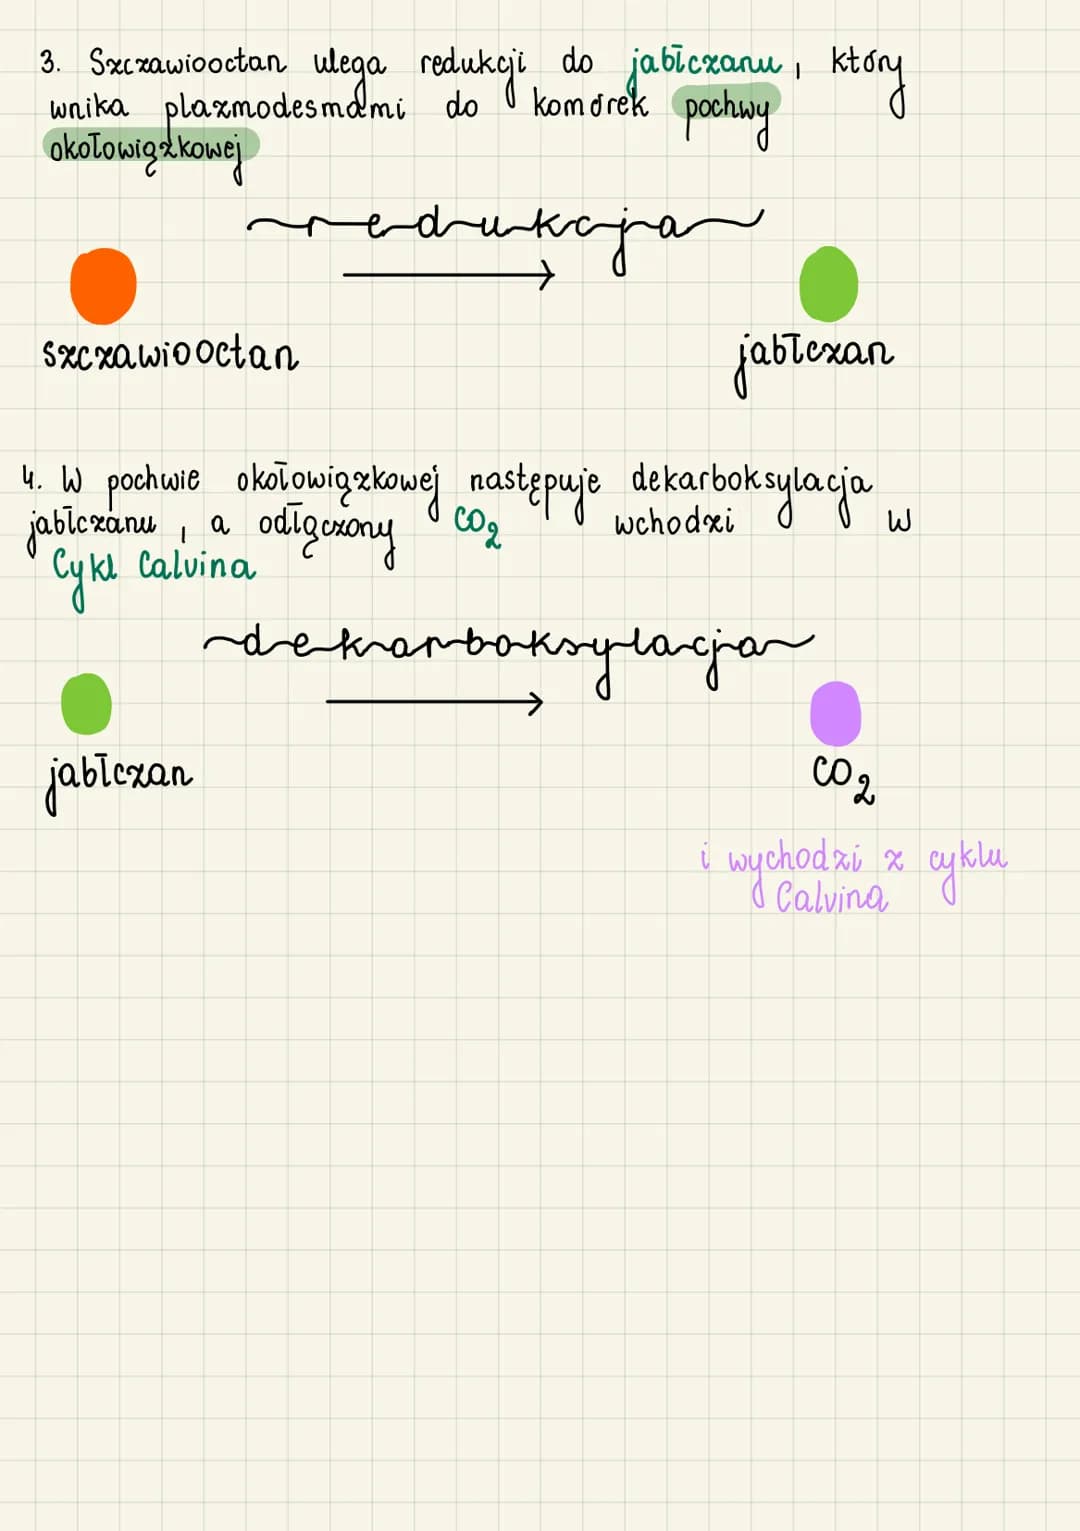 3. Szczawiooctan ulega redukcji do jabłczanu, który
wnika plazmodesmami do komórek pochwy
okołowiązkowej
redukcja
szczawiooctan
jabłczan
4. W pochwie okołowiązkowej następuje dekarboksylacja
jabłczanu, a odłączony CO₂ wchodzi w
Cykl Calvina
dekarboksylacja
jabłczan
CO₂
i wychodzi z cyklu
Calvina